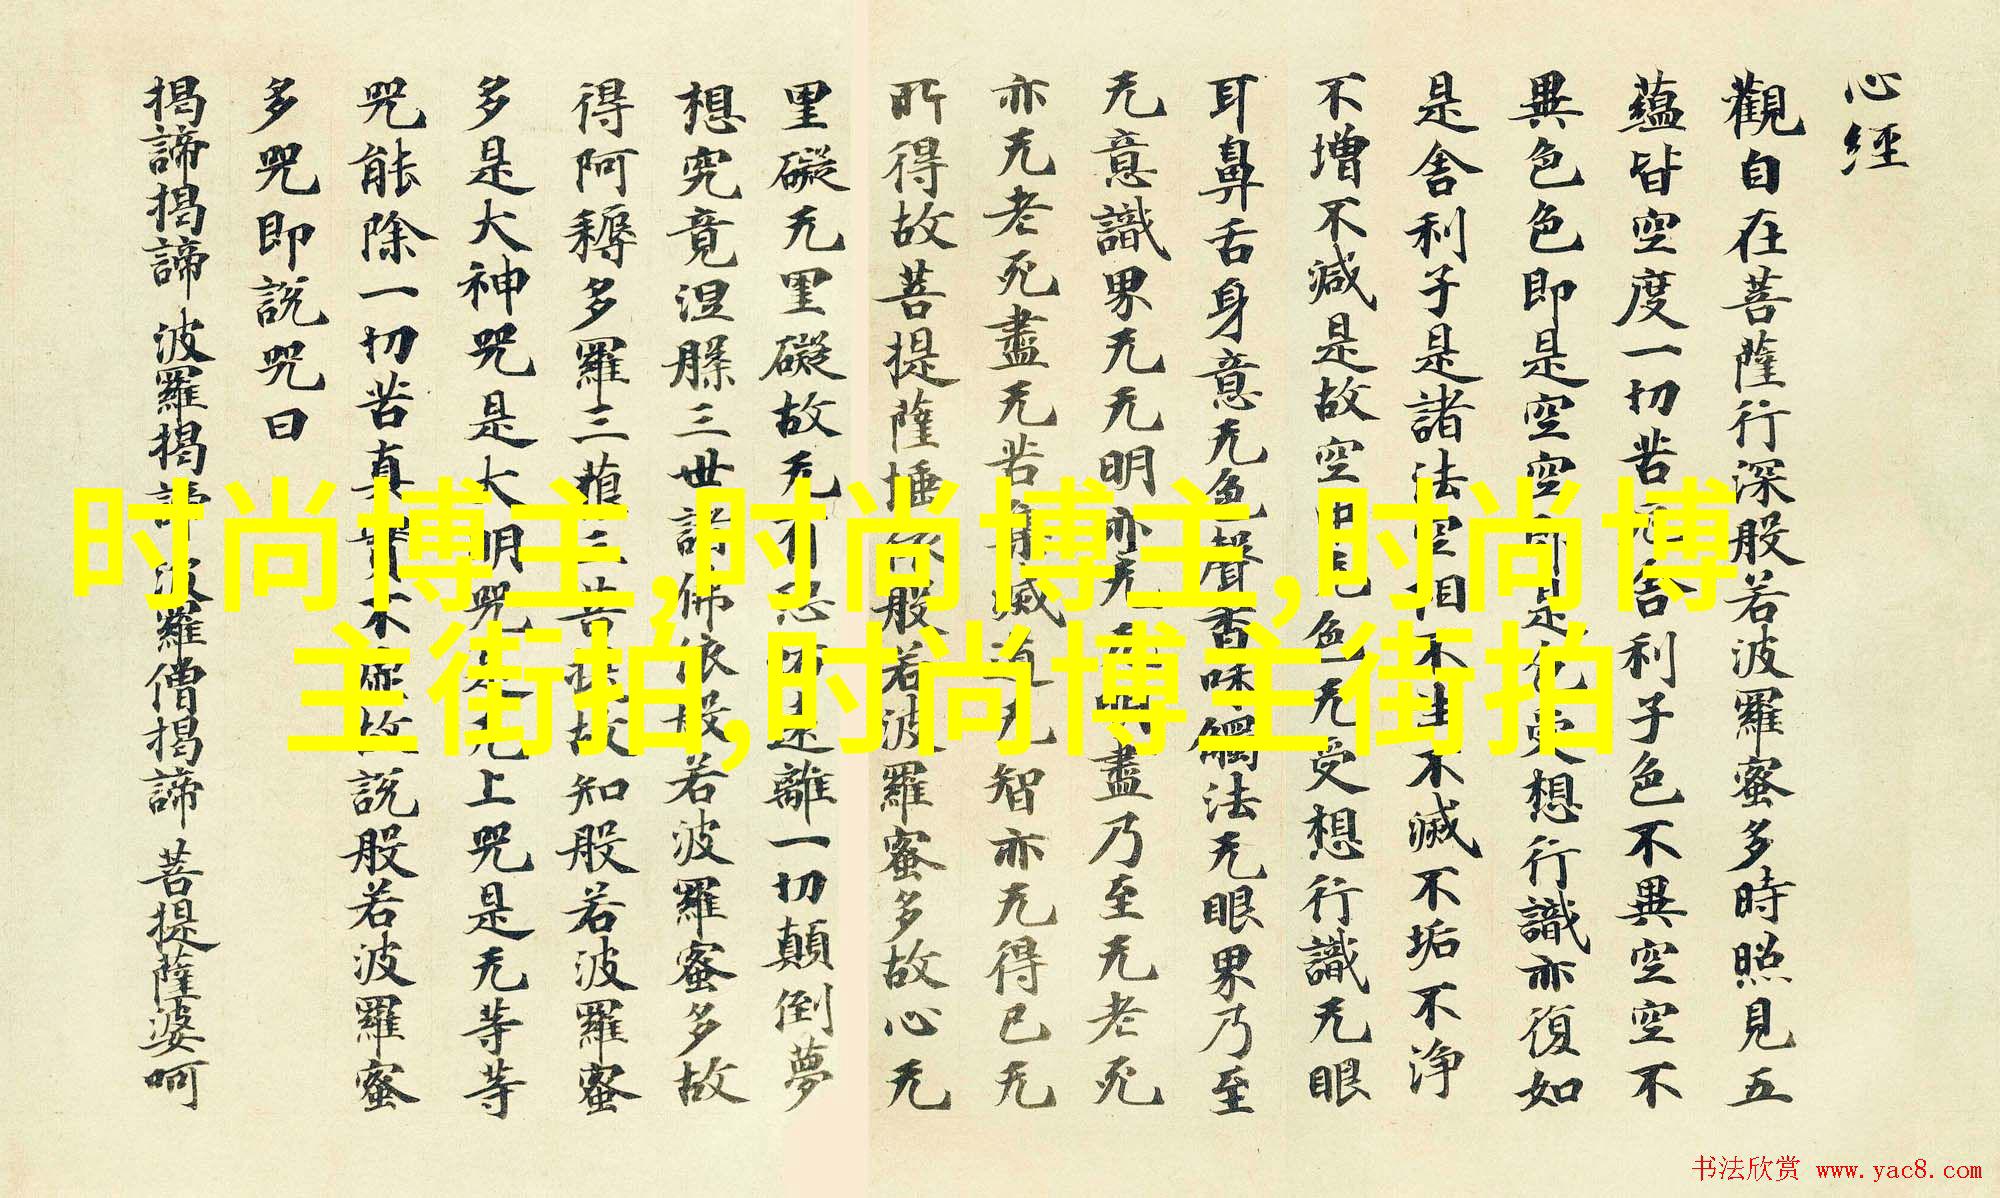 心經
觀自在菩薩行深般若波羅蜜多時照見五
蘊皆空度一切苦舍利子色不異空空不
異色色即是空空即是色受想行識亦復如
是舍利子是諸法空相不生不滅不垢不淨
不增不減是故空中无色无受想行識无眼
耳鼻舌身意无色聲香味觸法无眼界乃至
无意識界无无明亦无无明盡乃至无老死
亦无老死盡无苦集滅道无智亦无得已无
所得故菩提薩埵依般若波羅蜜多故心无
罣礙无罣礙故无有恐怖遠離一切顛倒夢
想究竟涅槃三世諸佛依般若波羅蜜多故
得阿耨多羅三藐三菩提故知般若波羅蜜
多是大神咒是大明咒是无上咒是无等等
咒能除一切苦真實不虛故說般若波羅蜜
多咒即說咒曰
揭諦揭諦 波羅揭諦 波羅僧揭諦 菩提薩婆呵
时尚博主,时尚博主,时尚博
主街拍,时尚博主街拍
书法欣赏 www.yac8.com